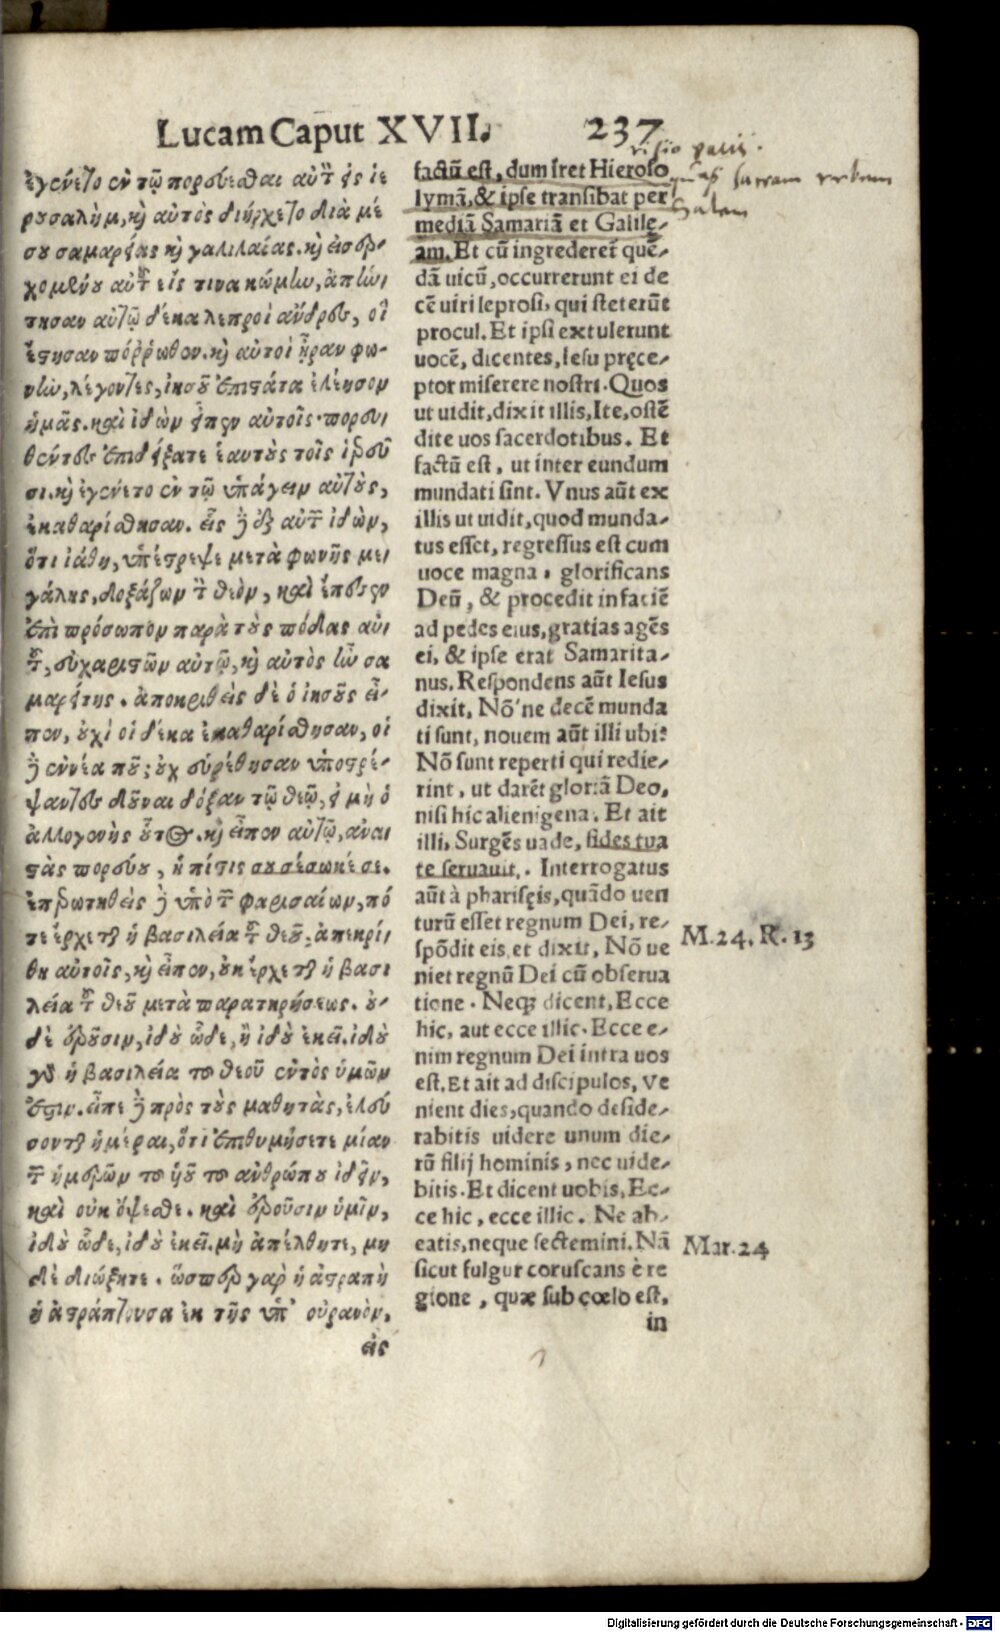 Lucam Caput XVII. 237
ἐγένετο ἐν τῷ πορεύεσθαι αὐτὸν εἰς ἱε
ρουσαλὴμ, καὶ αὐτὸς διήρχετο διὰ μέ
σου σαμαρείας καὶ γαλιλαίας. καὶ εἰσερ-
χομένου αὐτοῦ εἴς τινα κώμην, ἀπήν-
τησαν αὐτῷ δέκα λεπροὶ ἄνδρες, οἳ
ἔστησαν πόῤῥωθεν. καὶ αὐτοὶ ἦραν φω-
νὴν, λέγοντες, ἰησοῦ ἐπιστάτα ἐλέησον
ἡμᾶς. καὶ ἰδὼν εἶπεν αὐτοῖς. πορευ-
θέντες ἐπιδείξατε ἑαυτοὺς τοῖς ἱερεῦ
σι. καὶ ἐγένετο ἐν τῷ ὑπάγειν αὐτοὺς,
ἐκαθαρίσθησαν. εἷς δὲ ἐξ αὐτῶν ἰδὼν,
ὅτι ἰάθη, ὑπέστρεψε μετὰ φωνῆς με-
γάλης, δοξάζων τὸν θεὸν, καὶ ἔπεσεν
ἐπὶ πρόσωπον παρὰ τοὺς πόδας αὐ-
τοῦ, εὐχαριστῶν αὐτῷ, καὶ αὐτὸς ἦν σα
μαρείτης. ἀποκριθεὶς δὲ ὁ ἰησοῦς εἶ-
πεν, οὐχὶ οἱ δέκα ἐκαθαρίσθησαν, οἱ
δὲ ἐννέα ποῦ; οὐχ εὑρέθησαν ὑποστρέ-
ψαντες δοῦναι δόξαν τῷ θεῷ, εἰ μὴ ὁ
ἀλλογενὴς οὗτος. καὶ εἶπεν αὐτῷ, ἀνα-
στὰς πορεύου, ἡ πίστις σου σέσωκέ σε.
ἐπερωτηθεὶς δὲ ὑπὸ τῶν φαρισαίων, πό
τε ἔρχεται ἡ βασιλεία τοῦ θεοῦ, ἀπεκρί-
θη αὐτοῖς, καὶ εἶπεν, οὐκ ἔρχεται ἡ βασι
λεία τοῦ θεοῦ μετὰ παρατηρήσεως. οὐ-
δὲ ἐροῦσιν, ἰδοὺ ὧδε, ἢ ἰδοὺ ἐκεῖ. ἰδοὺ
γὰρ ἡ βασιλεία τοῦ θεοῦ ἐντὸς ὑμῶν
ἐστιν. εἶπε δὲ πρὸς τοὺς μαθητὰς, ἐλεύ
σονται ἡμέραι, ὅτι ἐπιθυμήσετε μίαν
τῶν ἡμερῶν τοῦ υἱοῦ τοῦ ἀνθρώπου ἰδεῖν,
καὶ οὐκ ὄψεσθε. καὶ ἐροῦσιν ὑμῖν,
ἰδοὺ ὧδε, ἰδοὺ ἐκεῖ. μὴ ἀπέλθητε, μη
δὲ διώξητε. ὥσπερ γὰρ ἡ ἀστραπὴ
ἡ ἀστράπτουσα ἐκ τῆς ὑπ' οὐρανὸν,
εἰς
factū est, dum iret Hieroso
lymā, & ipse transibat per
mediā Samariā et Galilę-
am. Et cū ingrederet quē-
dā uicū, occurrerunt ei de
cē uiri leprosi, qui steterūt
procul. Et ipsi extulerunt
uocē, dicentes, Iesu pręce-
ptor miserere nostri. Quos
ut uidit, dixit illis, Ite, ostē
dite uos sacerdotibus. Et
factū est, ut inter eundum
mundati sint. Vnus aūt ex
illis ut uidit, quod munda-
tus esset, regressus est cum
uoce magna, glorificans
Deū, & procedit in faciē
ad pedes eius, gratias agēs
ei, & ipse erat Samarita-
nus. Respondens aūt Iesus
dixit, Nō'ne decē munda
ti sunt, nouem aūt illi ubi?
Nō sunt reperti qui redie-
rint, ut darēt gloriā Deo,
nisi hic alienigena. Et ait
illi, Surgēs uade, fides tua
te seruauit. Interrogatus
aūt à pharisęis, quādo uen
turū esset regnum Dei, re-
spōdit eis et dixit, Nō ue
niet regnū Dei cū obserua
tione. Neq; dicent, Ecce
hic, aut ecce illic. Ecce e-
nim regnum Dei intra uos
est. Et ait ad discipulos, Ve
nient dies, quando deside-
rabitis uidere unum die-
rū filij hominis, nec uide-
bitis. Et dicent uobis, Ec-
ce hic, ecce illic. Ne ab-
eatis, neque sectemini. Nā
sicut fulgur coruscans è re
gione, quæ sub cœlo est,
in
visio pacis.
sacram urbem
Salem
M. 24. R. 13
Mar. 24
Digitalisierung gefördert durch die Deutsche Forschungsgemeinschaft - DFG